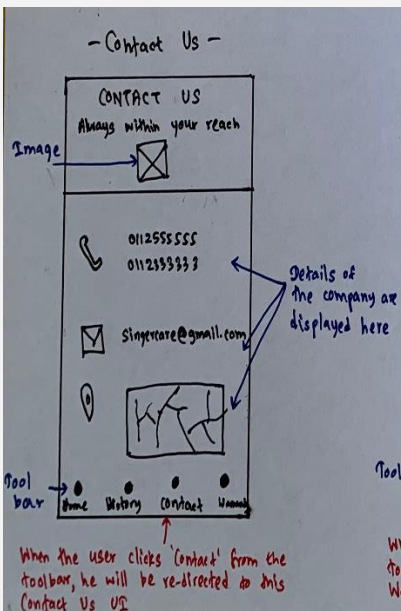 - Contact Us -
CONTACT US
Always within your reach
Image
0112555555
0112333333
Details of
the company are
displayed here
Singercare@gmail.com
Tool
bar
Home History Contact
When the user clicks 'Contact' from the
toolbar, he will be re-directed to this
Contact Us UI
Tool